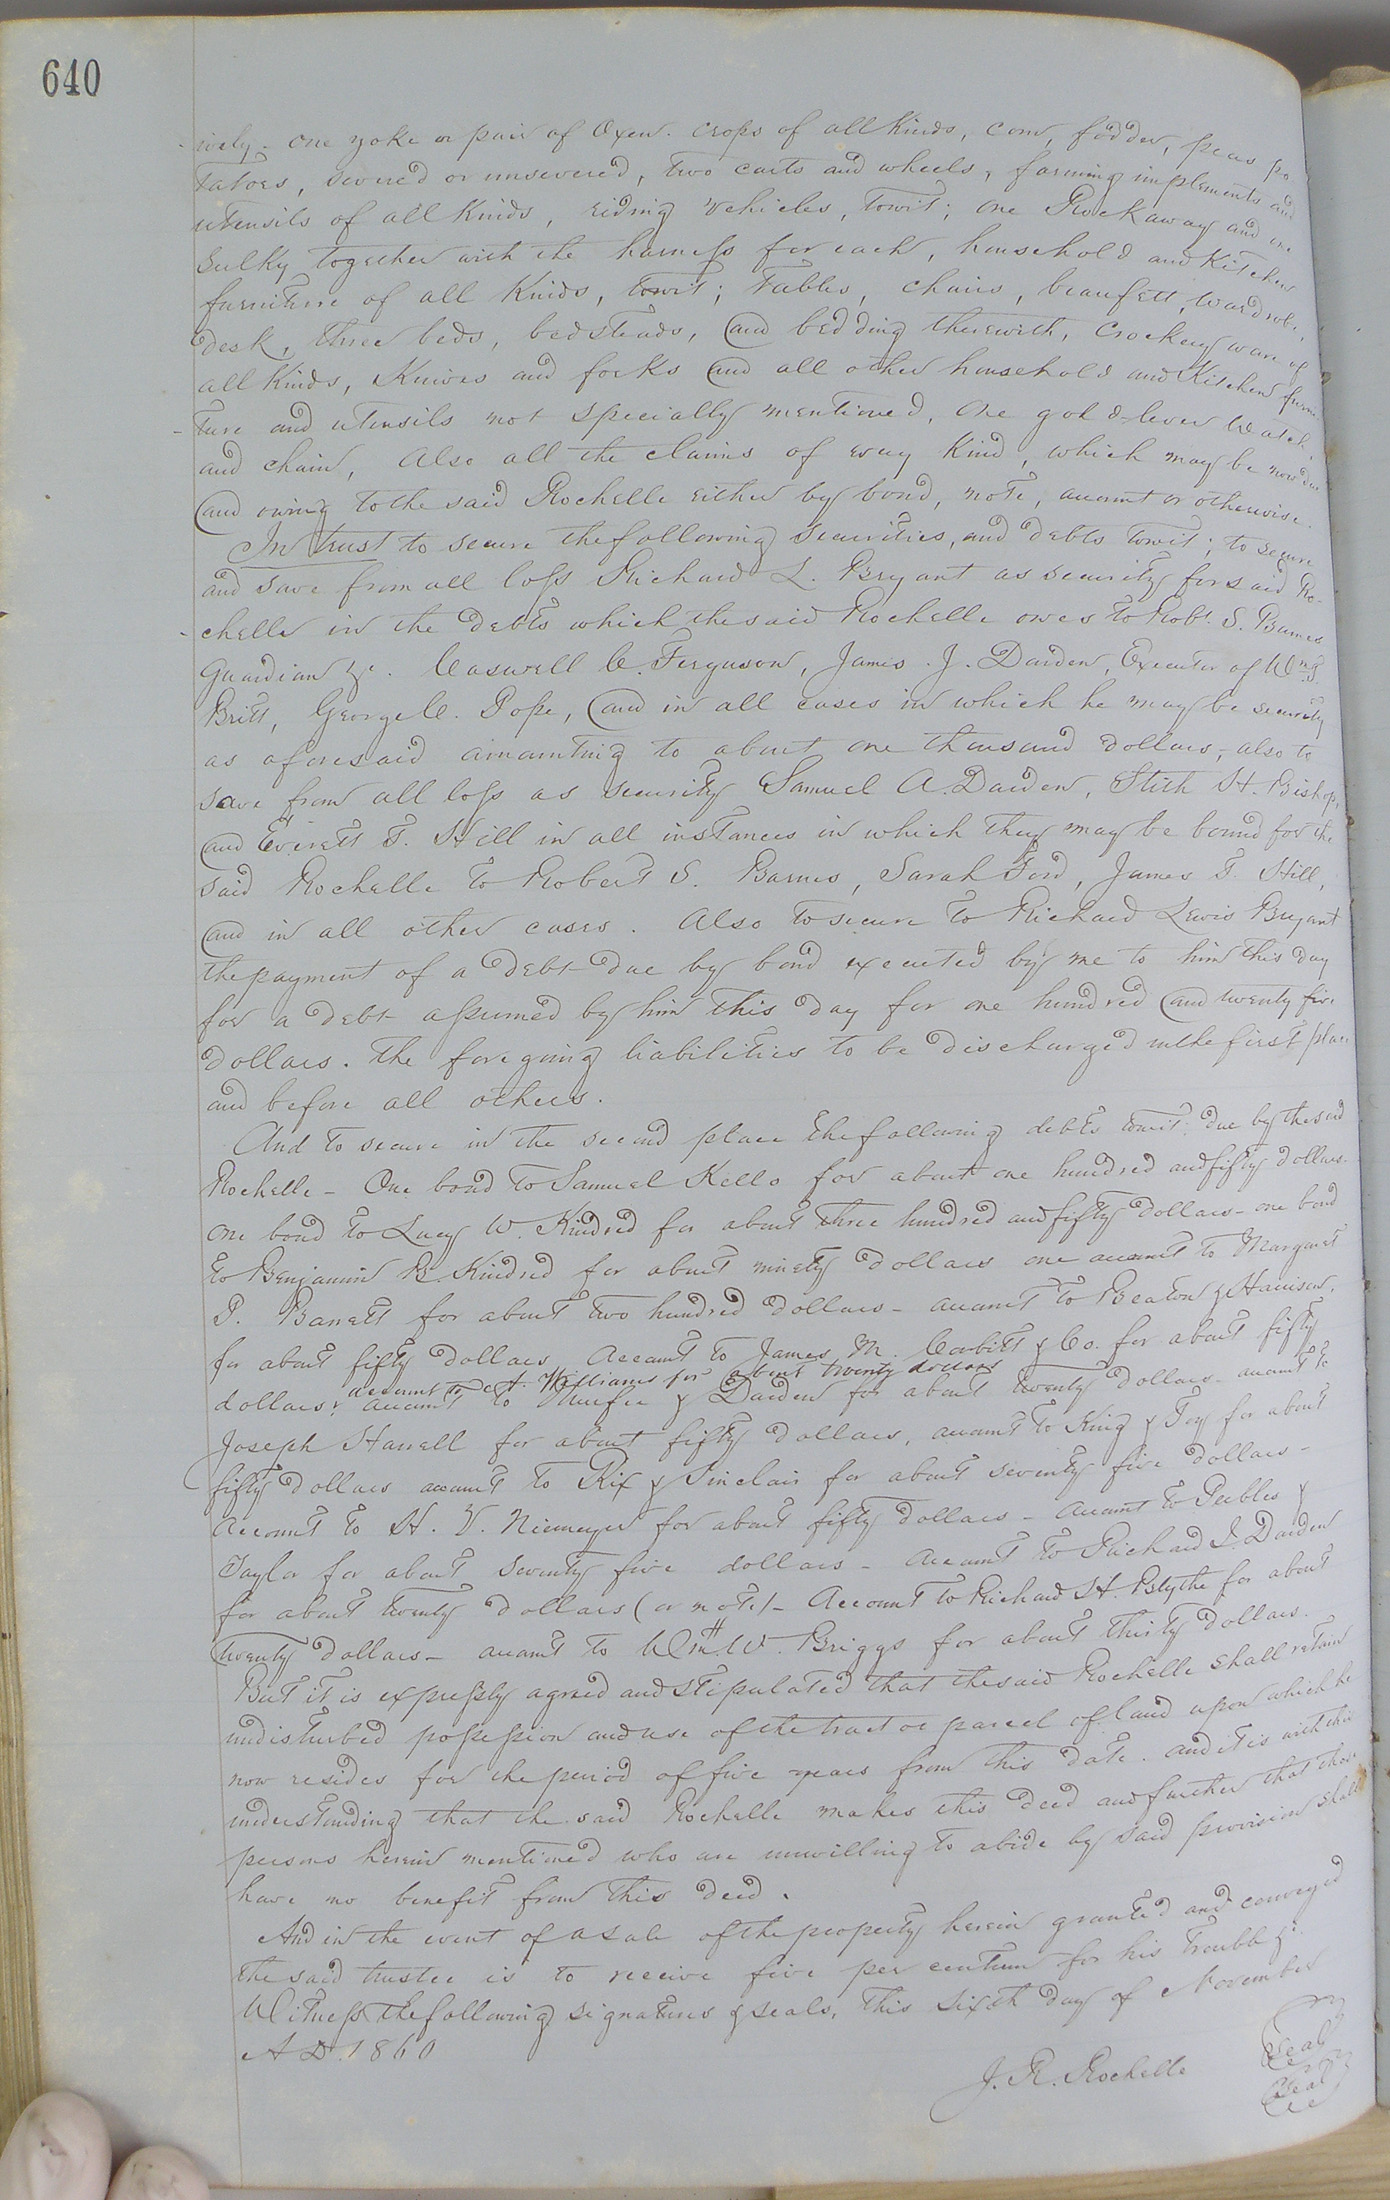 640
ively - one yoke or pair of Oxen. crops of all kinds, corn, fodder, peas po
tatoes, severed or unsevered, two carts and wheels, farming implements and
utensils of all kinds, riding vehicles, towit; one Rockaway and one
Sulky together with the harness for each, household and Kitchen
furniture of all kinds, towit; Tables, chairs, beaufett, wardrobe,
desk, three beds, bedsteads, and bedding therewith, Crockery ware of
all kinds, Knives and forks and all other household and Kitchen furni
ture and utensils not specially mentioned, One gold lever Watch
and chain, Also all the claims of every kind, which may be now due
and owing to the said Rochelle either by bond, note, account or otherwise.
In trust to secure the following securities, and debts towit; to secure
and save from all loss Richard L. Bryant as security for said Ro-
chelle in the debts which the said Rochelle owes to Robt. S. Barnes
Guardian &c. Caswell C. Ferguson, James J. Darden, Executor of Wm. T.
Britt, George C. Pope, and in all cases in which he may be security
as aforesaid amounting to about one thousand dollars, also to
save from all loss as security Samuel A. Darden, Stith H. Bishop,
and Everett T. Hill in all instances in which they may be bound for the
said Rochelle to Robert S. Barnes, Sarah Ford, James T. Hill,
and in all other cases. Also to secure to Richard Lewis Bryant
the payment of a debt due by bond executed by me to him this day
for a debt assumed by him this day for one hundred and twenty five
dollars. The foregoing liabilities to be discharged in the first place
and before all others.
And to secure in the second place the following debts towit: due by the said
Rochelle - One bond to Samuel Kello for about one hundred and fifty dollars-
one bond to Lucy W. Kindred for about three hundred and fifty dollars - one bond
to Benjamin B. Kindred for about ninety dollars one account to Margaret
P. Barrett for about two hundred dollars - account to Beaton & Harrison,
for about fifty dollars Account to James M. Corbitt & Co. for about fifty
account to A. Williams for about twenty dollars
dollars, account to & Darden for about twenty dollars - account to
Joseph Harrell for about fifty dollars, account to King & Toy for about
fifty dollars account to Rix & Sinclair for about seventy five dollars -
Account to H. V. Niemeyer for about fifty dollars - Account to Peebles &
Taylor for about seventy five dollars - Account to Richard J. Darden
for about twenty dollars (or note) - Account to Richard H. Blythe for about
twenty dollars - account to Wm. W. Briggs for about thirty dollars.
But it is expressly agreed and stipulated that the said Rochelle shall retain
undisturbed possession and use of the tract or parcel of land upon which he
now resides for the period of five years from this date. and it is with this
understanding that the said Rochelle makes this deed and further that those
persons herein mentioned who are unwilling to abide by said provision shall
have no benefit from this deed.
And in the event of a sale of the property herein granted and conveyed
the said trustee is to receive five per centum for his trouble &c.
Witness the following signatures & seals, this sixth day of November
A D. 1860
J. R. Rochelle Seal
Seal